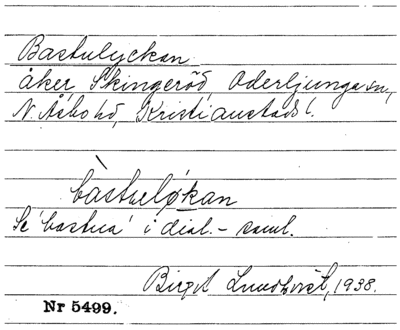 Bastulyckan
åker Skingeröd, Oderljunga sn,
N. Åsbo hd, Kristianstads l.
bàstuløkan
Se 'bastua' i dial.- saml.
Birgit Lundqvist, 1938.
Nr 5499.